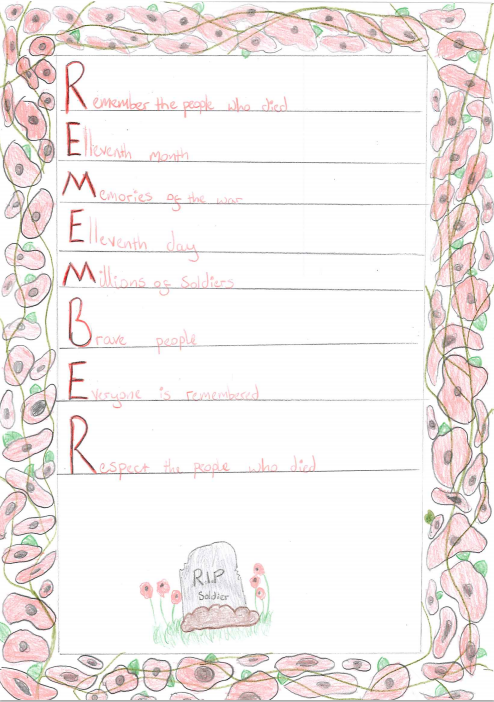 Remember the people who died
Elleventh month
Memories of the war
Elleventh day
Millions of Soldiers
Brave people
Everyone is remembered
Respect the people who died
R.I.P
Soldier